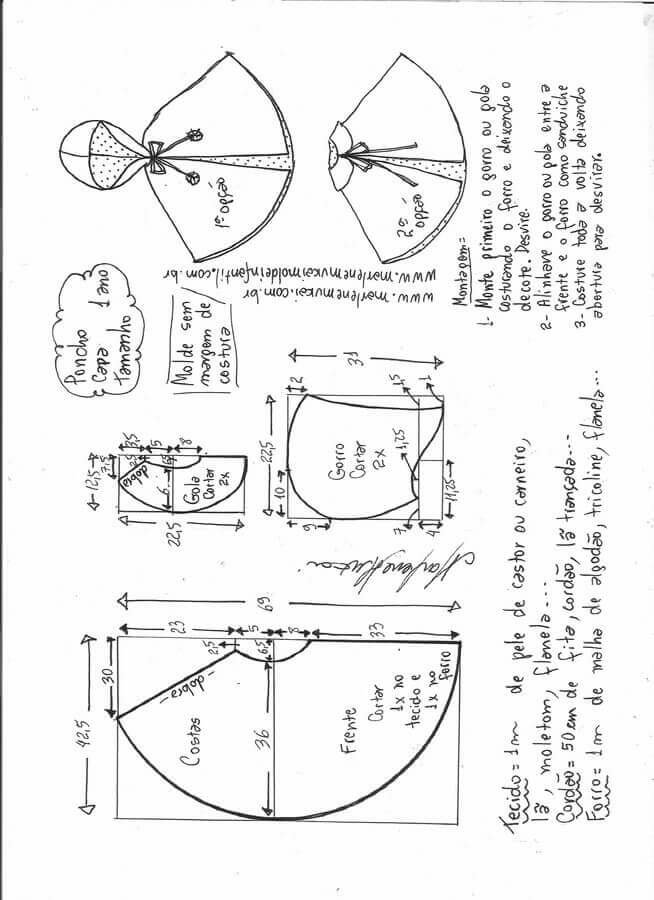 Poncho
e Capa 1 ano
tamanho
Molde sem
margem de
costura
1ª opção
2ª opção
www.marlenemukai.com.br
www.marlenemukaimoldeinfantil.com.br
Montagem=
1- Monte primeiro o gorro ou gola
costurando o forro e deixando o
decote. Desvire.
2- Alinhave o gorro ou gola entre a
frente e o forro como sanduiche
3- Costure toda a volta deixando
abertura para desvirar.
12,5
7,5
3,5
5
8
2,5
dobra
6
Gola
Cortar
2x
22,5
31
2
1,5
1
22,5
10
Gorro
Cortar
2x
1,25
9
7
4
11,25
69
23
5
8
33
42,5
30
2,5
6,5
-dobra-
Costas
36
Frente
Cortar
1x no
tecido e
1x no
forro
Tecido = 1m de pele de castor ou carneiro,
lã, moletom, flanela...
Cordão = 50 cm de fita, cordão, lã trançada...
Forro = 1m de malha de algodão, tricoline, flanela...